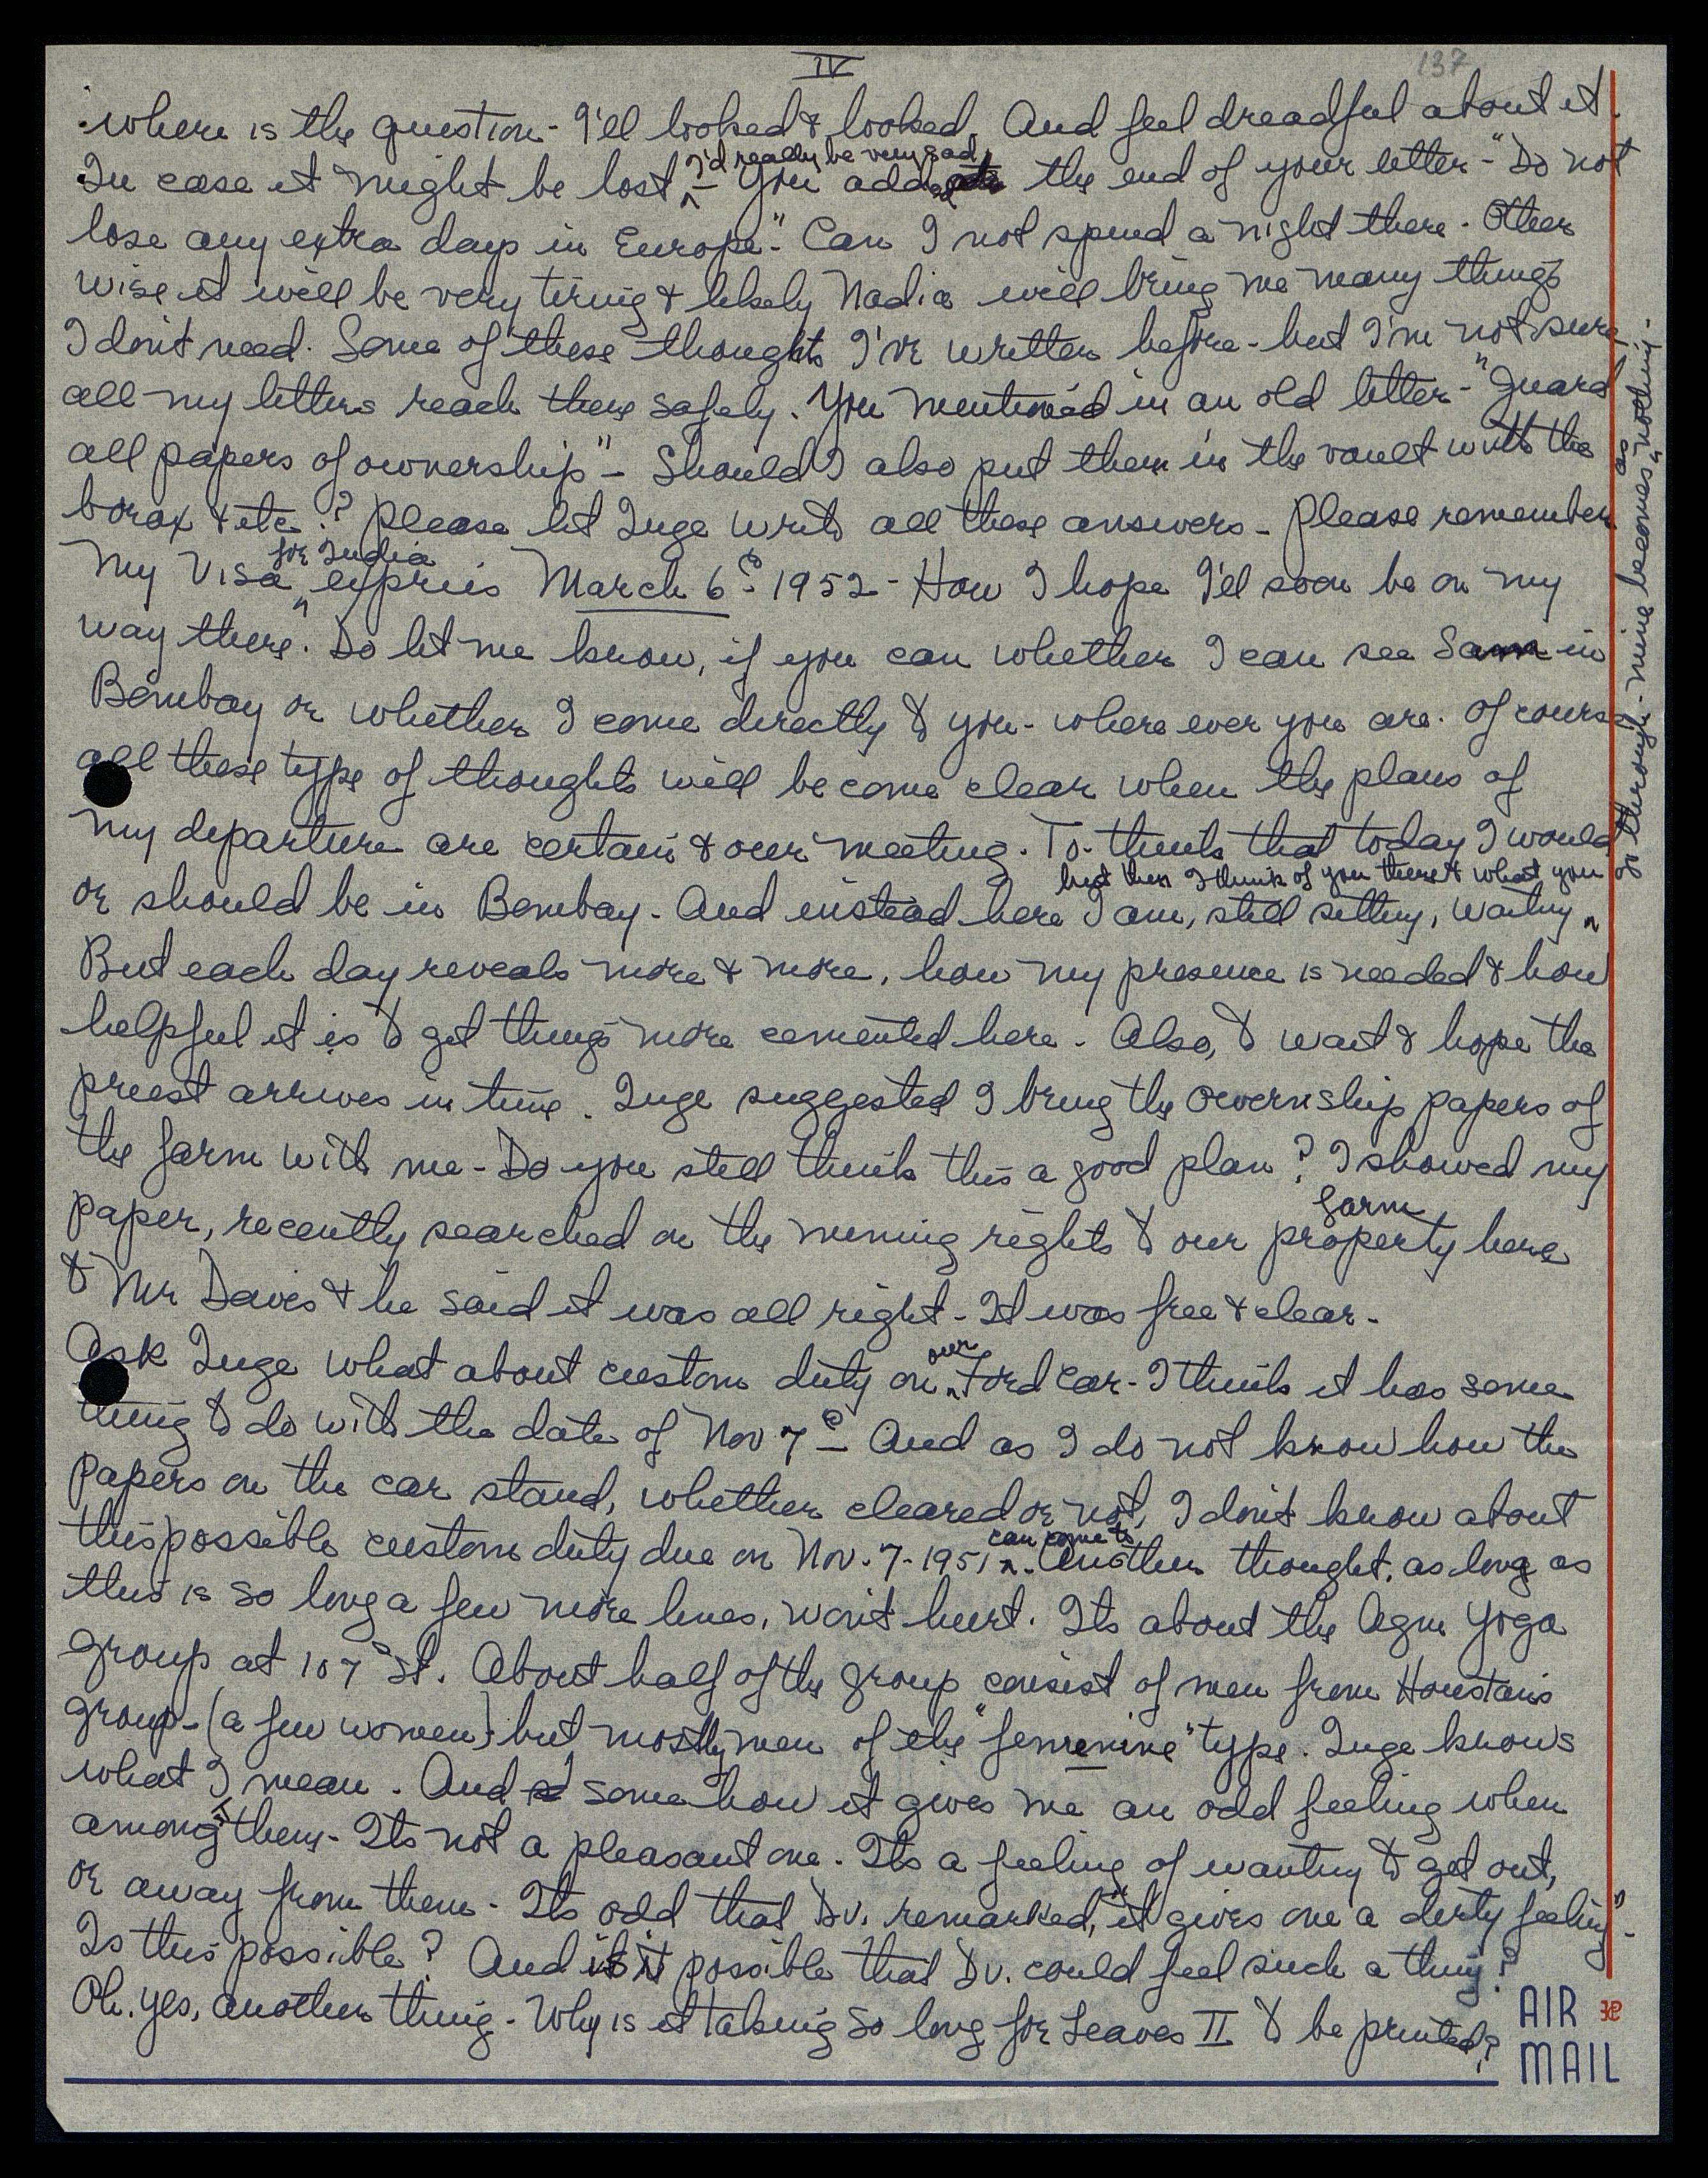 IV
137
where is the question - I'll looked & looked. And feel dreadful about it.
In case it might be lost, I'd really be very sad - You add at the end of your letter - "Do not
lose any extra days in Europe." Can I not spend a night there. Other
wise it will be very tiring & likely Nadia will bring me many things
I don't need. Some of these thoughts I've written before - but I'm not sure
all my letters reach there safely. You mentioned in an old letter - "Guard
all papers of ownership" - Should I also put them in the vault with the
borax & etc.? Please let Inge write all these answers - Please remember
My Visa for India expries March 6th 1952 - How I hope I'll soon be on my
way there. Do let me know, if you can whether I can see Sam in
Bombay or whether I come directly to you - where ever you are. Of course
all these type of thoughts will become clear when the plans of
my departure are certain & our meeting. To think that today I would
or should be in Bombay - And instead here I am, still sitting, waiting
but then I think of you there & what you
go through - mine becomes as "nothing".
But each day reveals more & more, how my presence is needed & how
helpful it is to get things more cemented here. Also, to wait & hope the
preest arrives in time. Inge suggested I bring the ownership papers of
the farm with me - Do you still think this a good plan? I showed my
paper, recently searched on the mining rights to our farm property here
to Mr Davis & he said it was all right - It was free & clear -
Ask Inge what about custom duty on our Ford car - I think it has some
thing to do with the date of Nov 7th - And as I do not know how the
papers on the car stand, whether cleared or not, I don't know about
this possible custom duty due on Nov. 7 - 1951 can come to. Another thought, as long as
this is so long a few more lines, won't hurt. Its about the Agni Yoga
group at 107th St. About half of the group consist of men from Houstons
group - (a few women) but mostly men of the "femenine" type. Inge knows
what I mean. And somehow it gives me an odd feeling when
among them - Its not a pleasant one. Its a feeling of wanting to get out,
or away from them - Its odd that Dv. remarked, "it gives one a dirty feeling".
Is this possible? And is it possible that Dv. could feel such a thing?
Oh. yes, another thing - Why is it taking so long for Leaves II to be printed?
AIR
MAIL